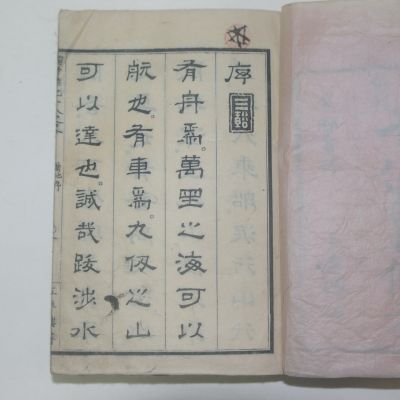 序
三谿
有舟焉。萬里之海可以
航也。有車焉。九仞之山
可以達也。誠哉跋涉水